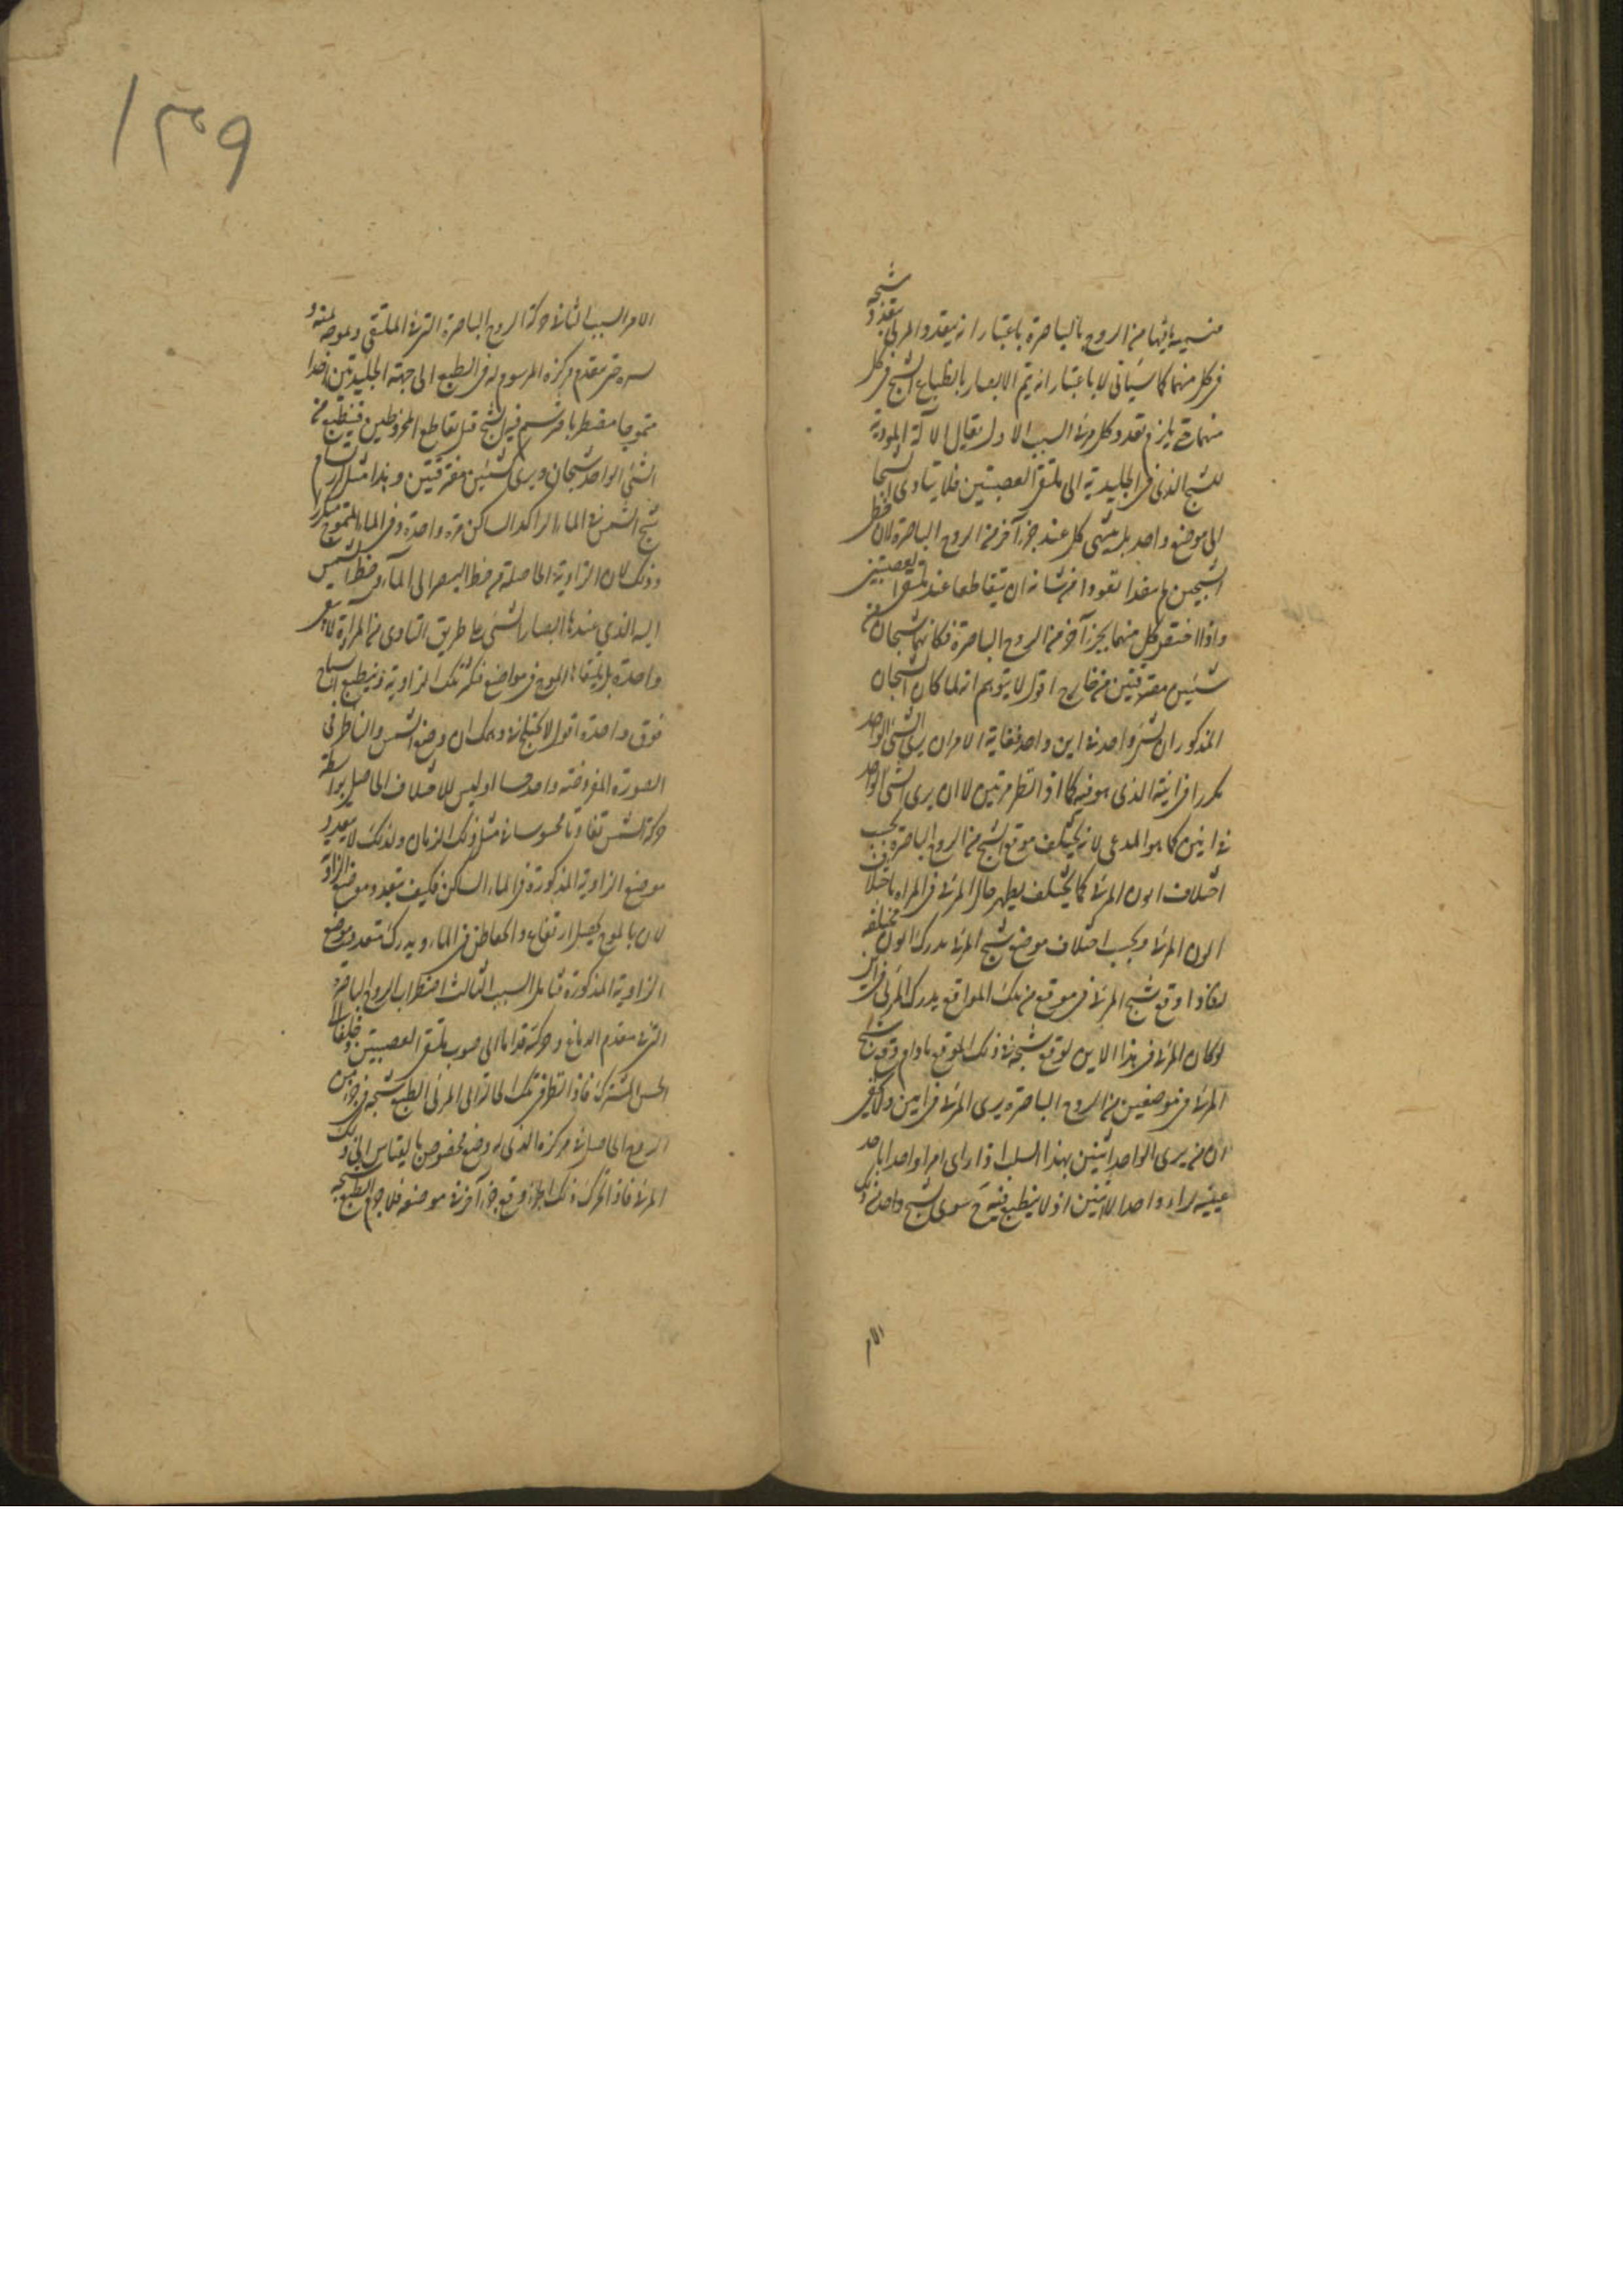 شبحه
فتسميه ما فيها من الروح بالباصرة باعتبار انه يتعدد المرئى بتعدد
فى كل منهما كما سياتى لا باعتبار انه يتم الابصار بانطباع الشبح فى كل
منهما حتى يلزم تعدد كل مرئى السبب الاول يقال الآلة المودية
للشبح الذى فى الجليدية الى ملتقى العصبتين فلا يتادى الشبحان
الى موضع واحد بل ينتهى كل عند جزء آخر من الروح الباصرة لان خط
الشبحين لم ينفذا نفوذا من شانه ان يتقاطعا عند ملتقى العصبتين
واذا اختص كل منهما بجزء آخر من الروح الباصرة فكانهما شبحان من
شيئين مفترقين من خارج اقول لا يتوهم انه لما كان الشبحان
المذكوران لشئ واحد فى اين واحد فغاية الامر ان يرى الشئ الواحد
مكررا فى اينه الذى هو فيه كما اذا نظر مرتين لا ان يرى الشئ الواحد
فى اينين كما هو المدعى لانه يختلف موقع الشبح من الروح الباصرة بحسب
اختلاف اين المرئى كما يختلف يظهر حال المرئى فى المراة باختلاف
اين المرئى وبحسب اختلاف موضع شبح المرئى يدرك اين مختلفة
فاذا وقع شبح المرئى فى موقع من تلك المواقع يدرك المرئى فى اين
لو كان المرئى فى هذا الاين لوقع شبحه فى ذلك الموقع مادام وقوع شبح
المرئى فى موضعين من الروح الباصرة يرى المرئى فى اينين ولا يخفى
ان من يرى الواحد اثنين بهذا السبب اذا راى امرا واحدا باحد
عينيه يراه واحدا لا اثنين اذ لا ينطبع فيه ح سوى شبح واحد من ذلك
الامر
١٣٩
الامر السبب الثانى حركة الروح الباصرة التى فى الملتقى وتموجه يمنة و
يسرة حتى يتقدم مركزه المرسوم له فى الطبع الى جهة الجليديتين اخذا
متموجا مضطربا فيرتسم فيه الشبح قبل تقاطع المخروطين فينطبع من
الشئ الواحد شبحان ويرى شيئين مفترقين وهذا مثل ارتسام
شبح الشمس فى الماء الراكد الساكن مرة واحدة وفى الماء المتموج متكررا
وذلك لان الزاوية الحاصلة من خط البصر الى الماء وخط الشمس
اليه الذى عندها ابصار الشئ على طريق التادى من المراة لا يبقى
واحدة بل يلقاها الموج فى مواضع فتكثر تلك الزاوية وينطبع اشباح
فوق واحدة اقول لا يختلج فى وهمك ان وضع الشمس والناظر فى
الصورة المفروضة واحد اذ ليس للاختلاف الحاصل بواسطة
حركة الشمس تفاوتا محسوسا فى مثل ذلك الزمان ولذلك لا يتعدد
موضع الزاوية المذكورة فى الماء الساكن فكيف يتعدد موضع الزاوية
لان بالموج يحصل ارتفاع وانخفاض فى الماء وبه يدرك تعدد موضع
الزاوية المذكورة فتامل السبب الثالث اضطراب الروح الباصرة
التى فى مقدم الدماغ وحركته قداما الى صوب ملتقى العصبتين وخلفا الى
الحس المشترك فاذا نظر فى تلك الحالة الى المرئى انطبع شبحه فى جزء من
الروح الحاصل فى مركزه الذى له وضع مخصوص بالقياس الى ذلك
المرئى فاذا تحرك ذلك الجزء وقع جزء آخر فى موضعه فلا جرم انطبع شبحه